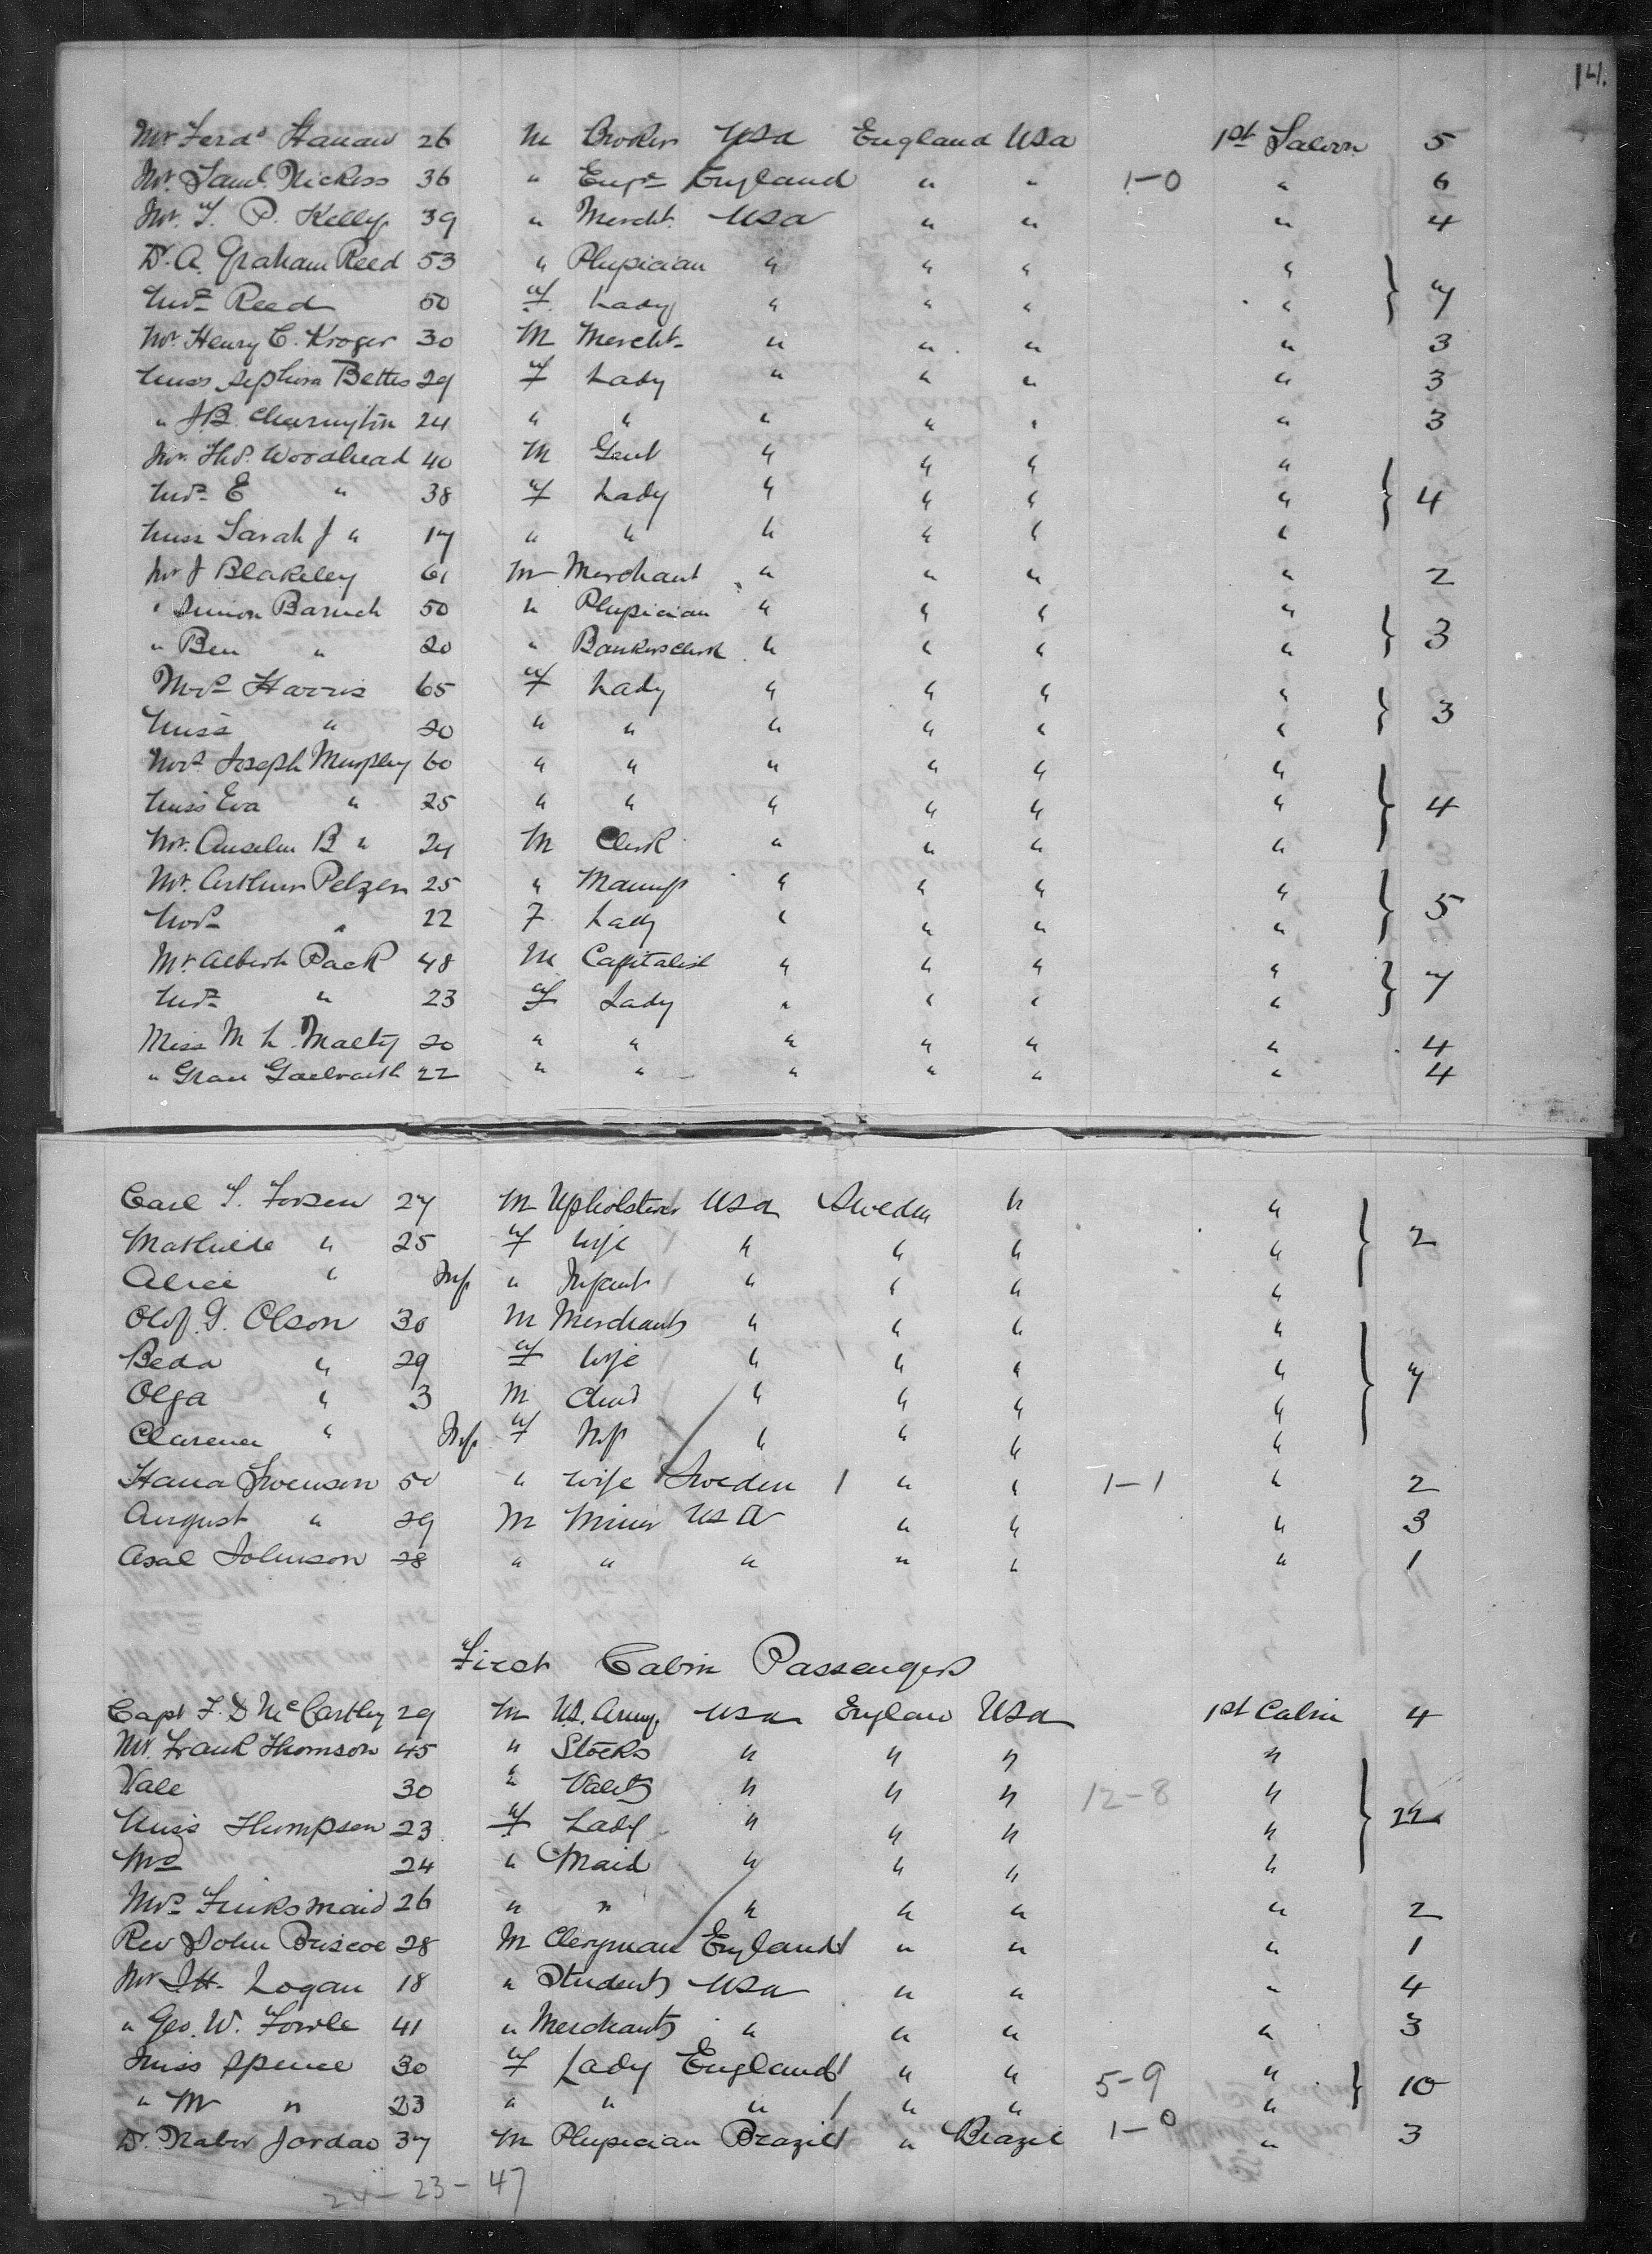 14.
Mr Ferdo Hanaw 26 M Broker USA England USA 1st Saloon 5
Mr. Saml. Nickess 36 " Engr England " " 1-0 " 6
Mr. T. P. Kelly 39 " Mercht. USA " " " 4
Dr. A. Graham Reed 53 " Physician " " " " 7
Mrs Reed 50 F Lady " " " "
Mr Henry C. Kroger 30 M Mercht " " " " 3
Miss Sephora Bettes 29 F Lady " " " " 3
" J.B. Charington 24 " " " " " " 3
Mr. Thos. Woodhead 40 M Gent " " " "
Mrs E " 38 F Lady " " " " 4
Miss Sarah J " 17 " " " " " "
Mr J Blakeley 61 M Merchant " " " " 2
" Simon Baruch 50 " Physician " " " "
" Ben " 20 " Bankers clerk " " " " 3
Mrs Harris 65 F Lady " " " "
Miss " 20 " " " " " " 3
Mrs Joseph Murphy 60 " " " " " "
Miss Eva " 25 " " " " " " 4
Mr. Anselm B " 24 M Clerk " " " "
Mr. Arthur Pelzer 25 " Manufr " " " " 5
Mrs " 22 F Lady " " " "
Mr Albert Pack 48 M Capitalist " " " " 7
Mrs " 23 F Lady " " " "
Miss M L Malty 20 " " " " " " 4
" 22 " " " " " " 4
Carl T. Forsen 27 M Upholsterer USA Sweden " "
Mathilde " 25 F Wife " " " " 2
Alice " Inf " Infant " " " "
Olof. G. Olson 30 M Merchant " " " "
Beda " 29 F Wife " " " " 7
Olga " 3 M Child " " " "
Clarence " Inf F Inf " " " "
Hana Swenson 50 " Wife Sweden 1 " " 1-1 " 2
August " 29 M Miner USA " " " 3
Axel Johnson 28 " " " " " " 1
First Cabin Passengers
Capt F. D McCarthy 29 M U.S. Army USA Englan USA 1st Cabin 4
Mr. Frank Thomson 45 " Stocks " " " "
Vale 30 " Valet " " " 12-8 " 22
Miss Thompson 23 F Lady " " " "
Md 24 " Maid " " " "
Mrs Finks maid 26 " " " " " " 2
Rev John Briscoe 28 M Clergman England 1 " " " 1
Mr J.H. Logan 18 " Student USA " " " 4
" Geo. W. Fowle 41 " Merchant " " " " 3
Miss Spence 30 F Lady England 1 " " 5-9 " 10
" M " 23 " " " 1 " " "
Dr. Nabor Jordao 37 M Physician Brazil 1 " Brazil 1-0 " 3
24-23-47